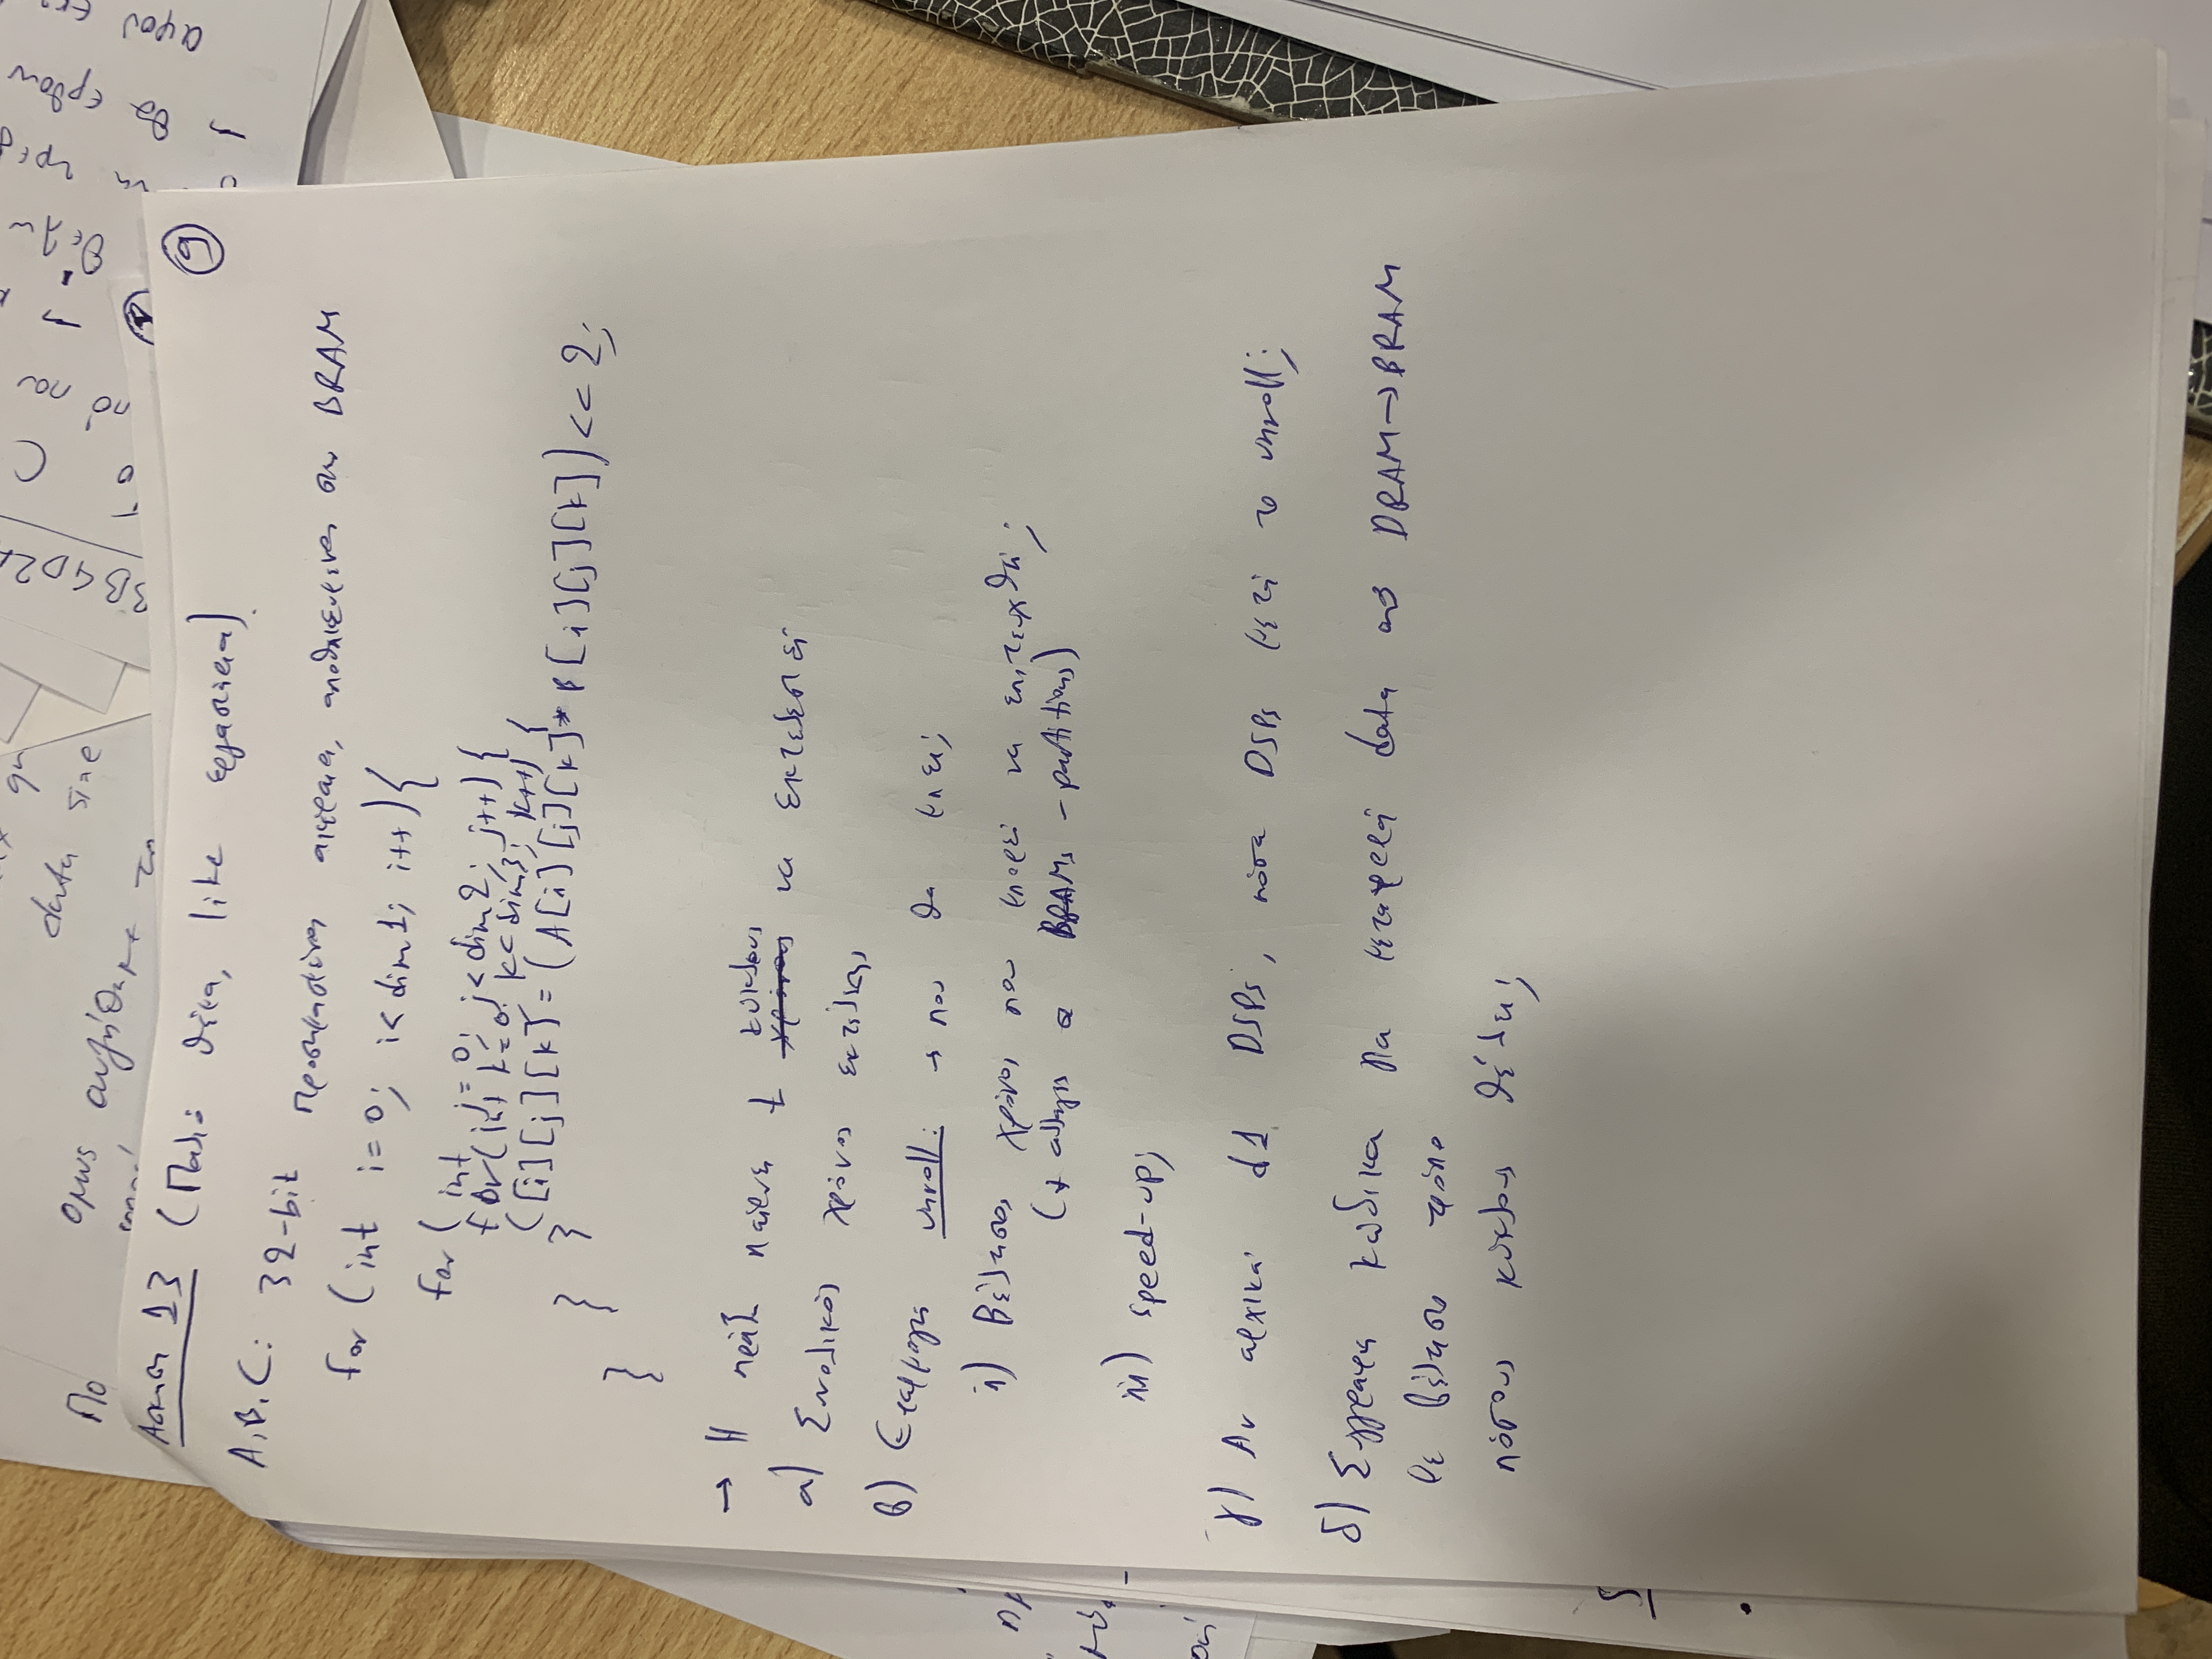 Πο
όμως αυξήθηκε το
qu
data size
3B4D2A
C
πό που
θέλω
θα ερθουν
αφού
Άσκηση 13 (Παλιό θέμα, like εργαστήρια)
9
A, B, C: 32-bit προσημασμένοι ακέραιοι, αποθηκευμένοι στην BRAM
for (int i=0; i<dim1; i++){
for (int j=0; j<dim2; j++){
for (int k=0; k<dim3; k++) {
C[i][j][k] = (A[i][j][k] * B[i][j][k]) << 2;
} }
}
→ Η πράξη παίρνει t κύκλους να εκτελεστεί
α) Συνολικός χρόνος εκτέλεσης
β) Εφαρμογή unroll: → που θα μπει;
i) Βέλτιστος χρόνος που μπορεί να επιτευχθεί;
(+ αλλαγές σε BRAMs - partitions)
ii) speed-up;
γ) Αν αρχικά d1 DSPs, πόσα DSPs μετά το unroll;
δ) Συγγραφή κώδικα για μεταφορά data από DRAM→BRAM
με βέλτιστο τρόπο
πόσους κύκλους θέλει;